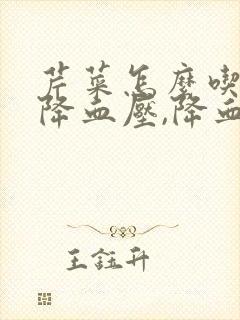 芹菜怎麼喫
降血壓,降血
王鈺升